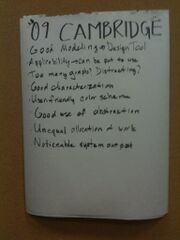 '09 CAMBRIDGE
Good Modeling → Design Tool
Applicability → can be put to use
Too many graphs? Distracting?
Good characterization
User friendly color scheme
Good use of abstraction
Unequal allocation of work
Noticeable system